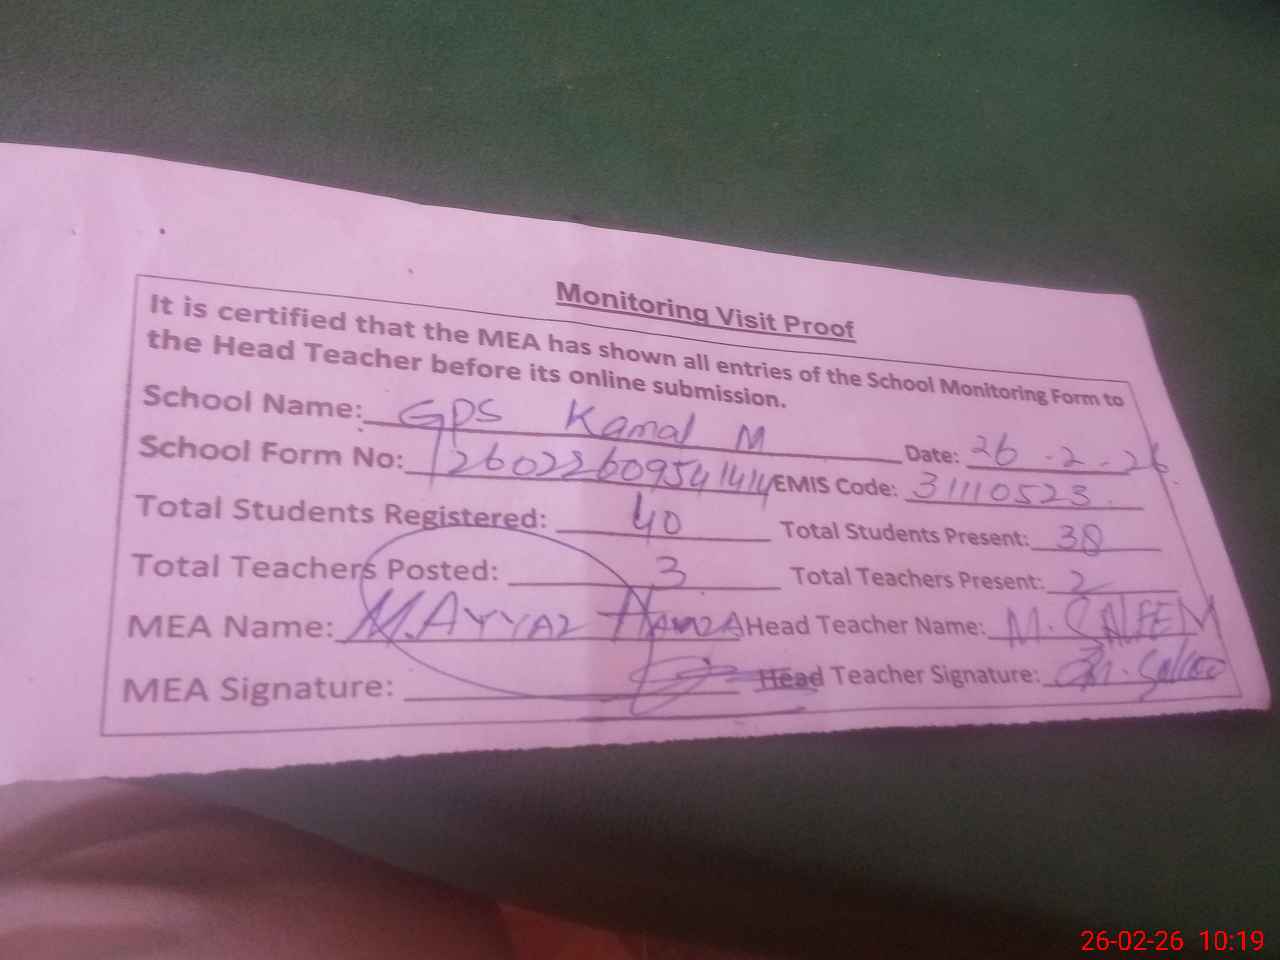 Monitoring Visit Proof
It is certified that the MEA has shown all entries of the School Monitoring Form to
the Head Teacher before its online submission.
School Name: GPS Kamal M Date: 26-2-26
School Form No: EMIS Code: 31110523
Total Students Registered: 40 Total Students Present: 38
Total Teachers Posted: 3 Total Teachers Present: 2
MEA Name: M. AYYAZ HAMZA Head Teacher Name: M. SALEEM
MEA Signature: Head Teacher Signature: M. Saleem
26-02-26 10:19